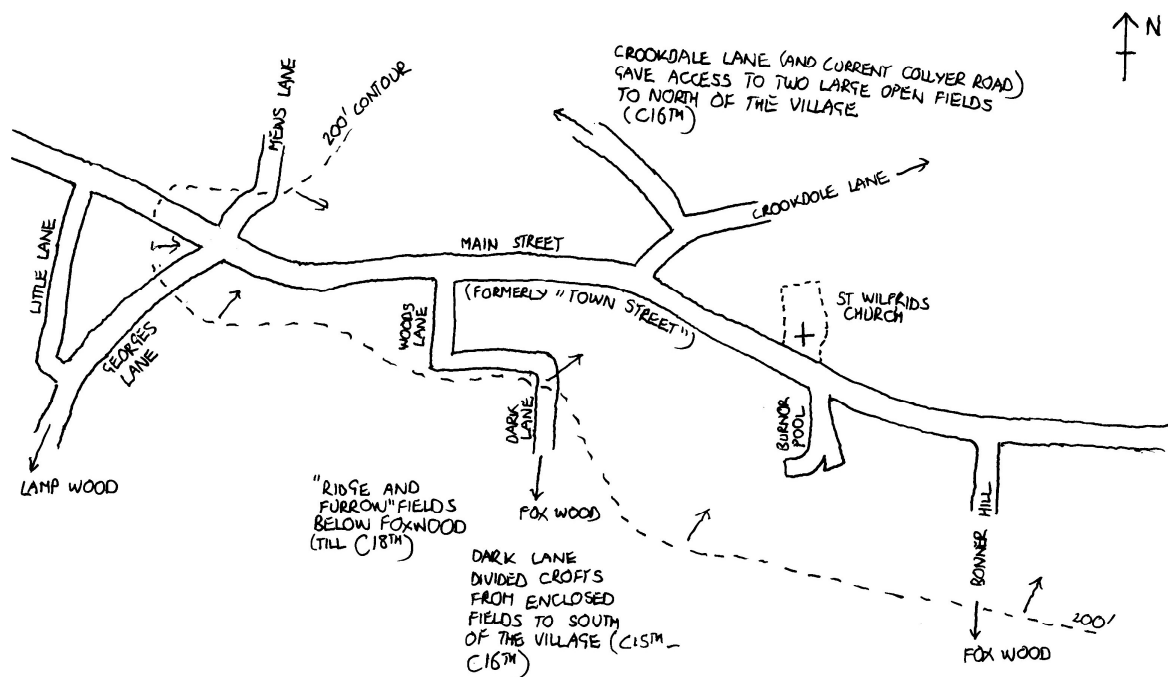 N
CROOKDALE LANE (AND CURRENT COLLYER ROAD)
GAVE ACCESS TO TWO LARGE OPEN FIELDS
TO NORTH OF THE VILLAGE
(C16TH)
MEWS LANE
200' CONTOUR
CROOKDOLE LANE
LITTLE LANE
MAIN STREET
(FORMERLY "TOWN STREET")
ST WILFRIDS
CHURCH
GEORGES
LANE
WOODS
LANE
DARK
LANE
BURNOR
POOL
LAMP WOOD
"RIDGE AND
FURROW" FIELDS
BELOW FOXWOOD
(TILL C18TH)
FOX WOOD
DARK LANE
DIVIDED CROFTS
FROM ENCLOSED
FIELDS TO SOUTH
OF THE VILLAGE (C15TH-
C16TH)
BONNER HILL
200'
FOX WOOD